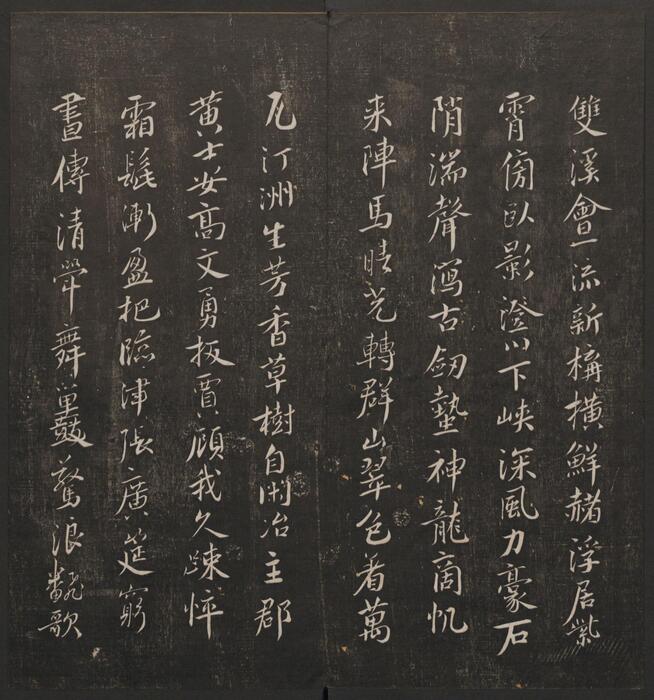 雙溪會一流新構橫鮮赭浮居紫
霄傍臥影澄川下峽深風力豪石
陗湍聲瀉古劒蟄神龍商帆
来陣馬晴光轉群山翠色着萬
瓦汀洲生芳香草樹自閑冶主郡
黄士安高文勇扳賈顧我久踈悴
霜髭漸盈把臨津張廣筵窮
晝傳清斝舞鼓驚浪翻歌